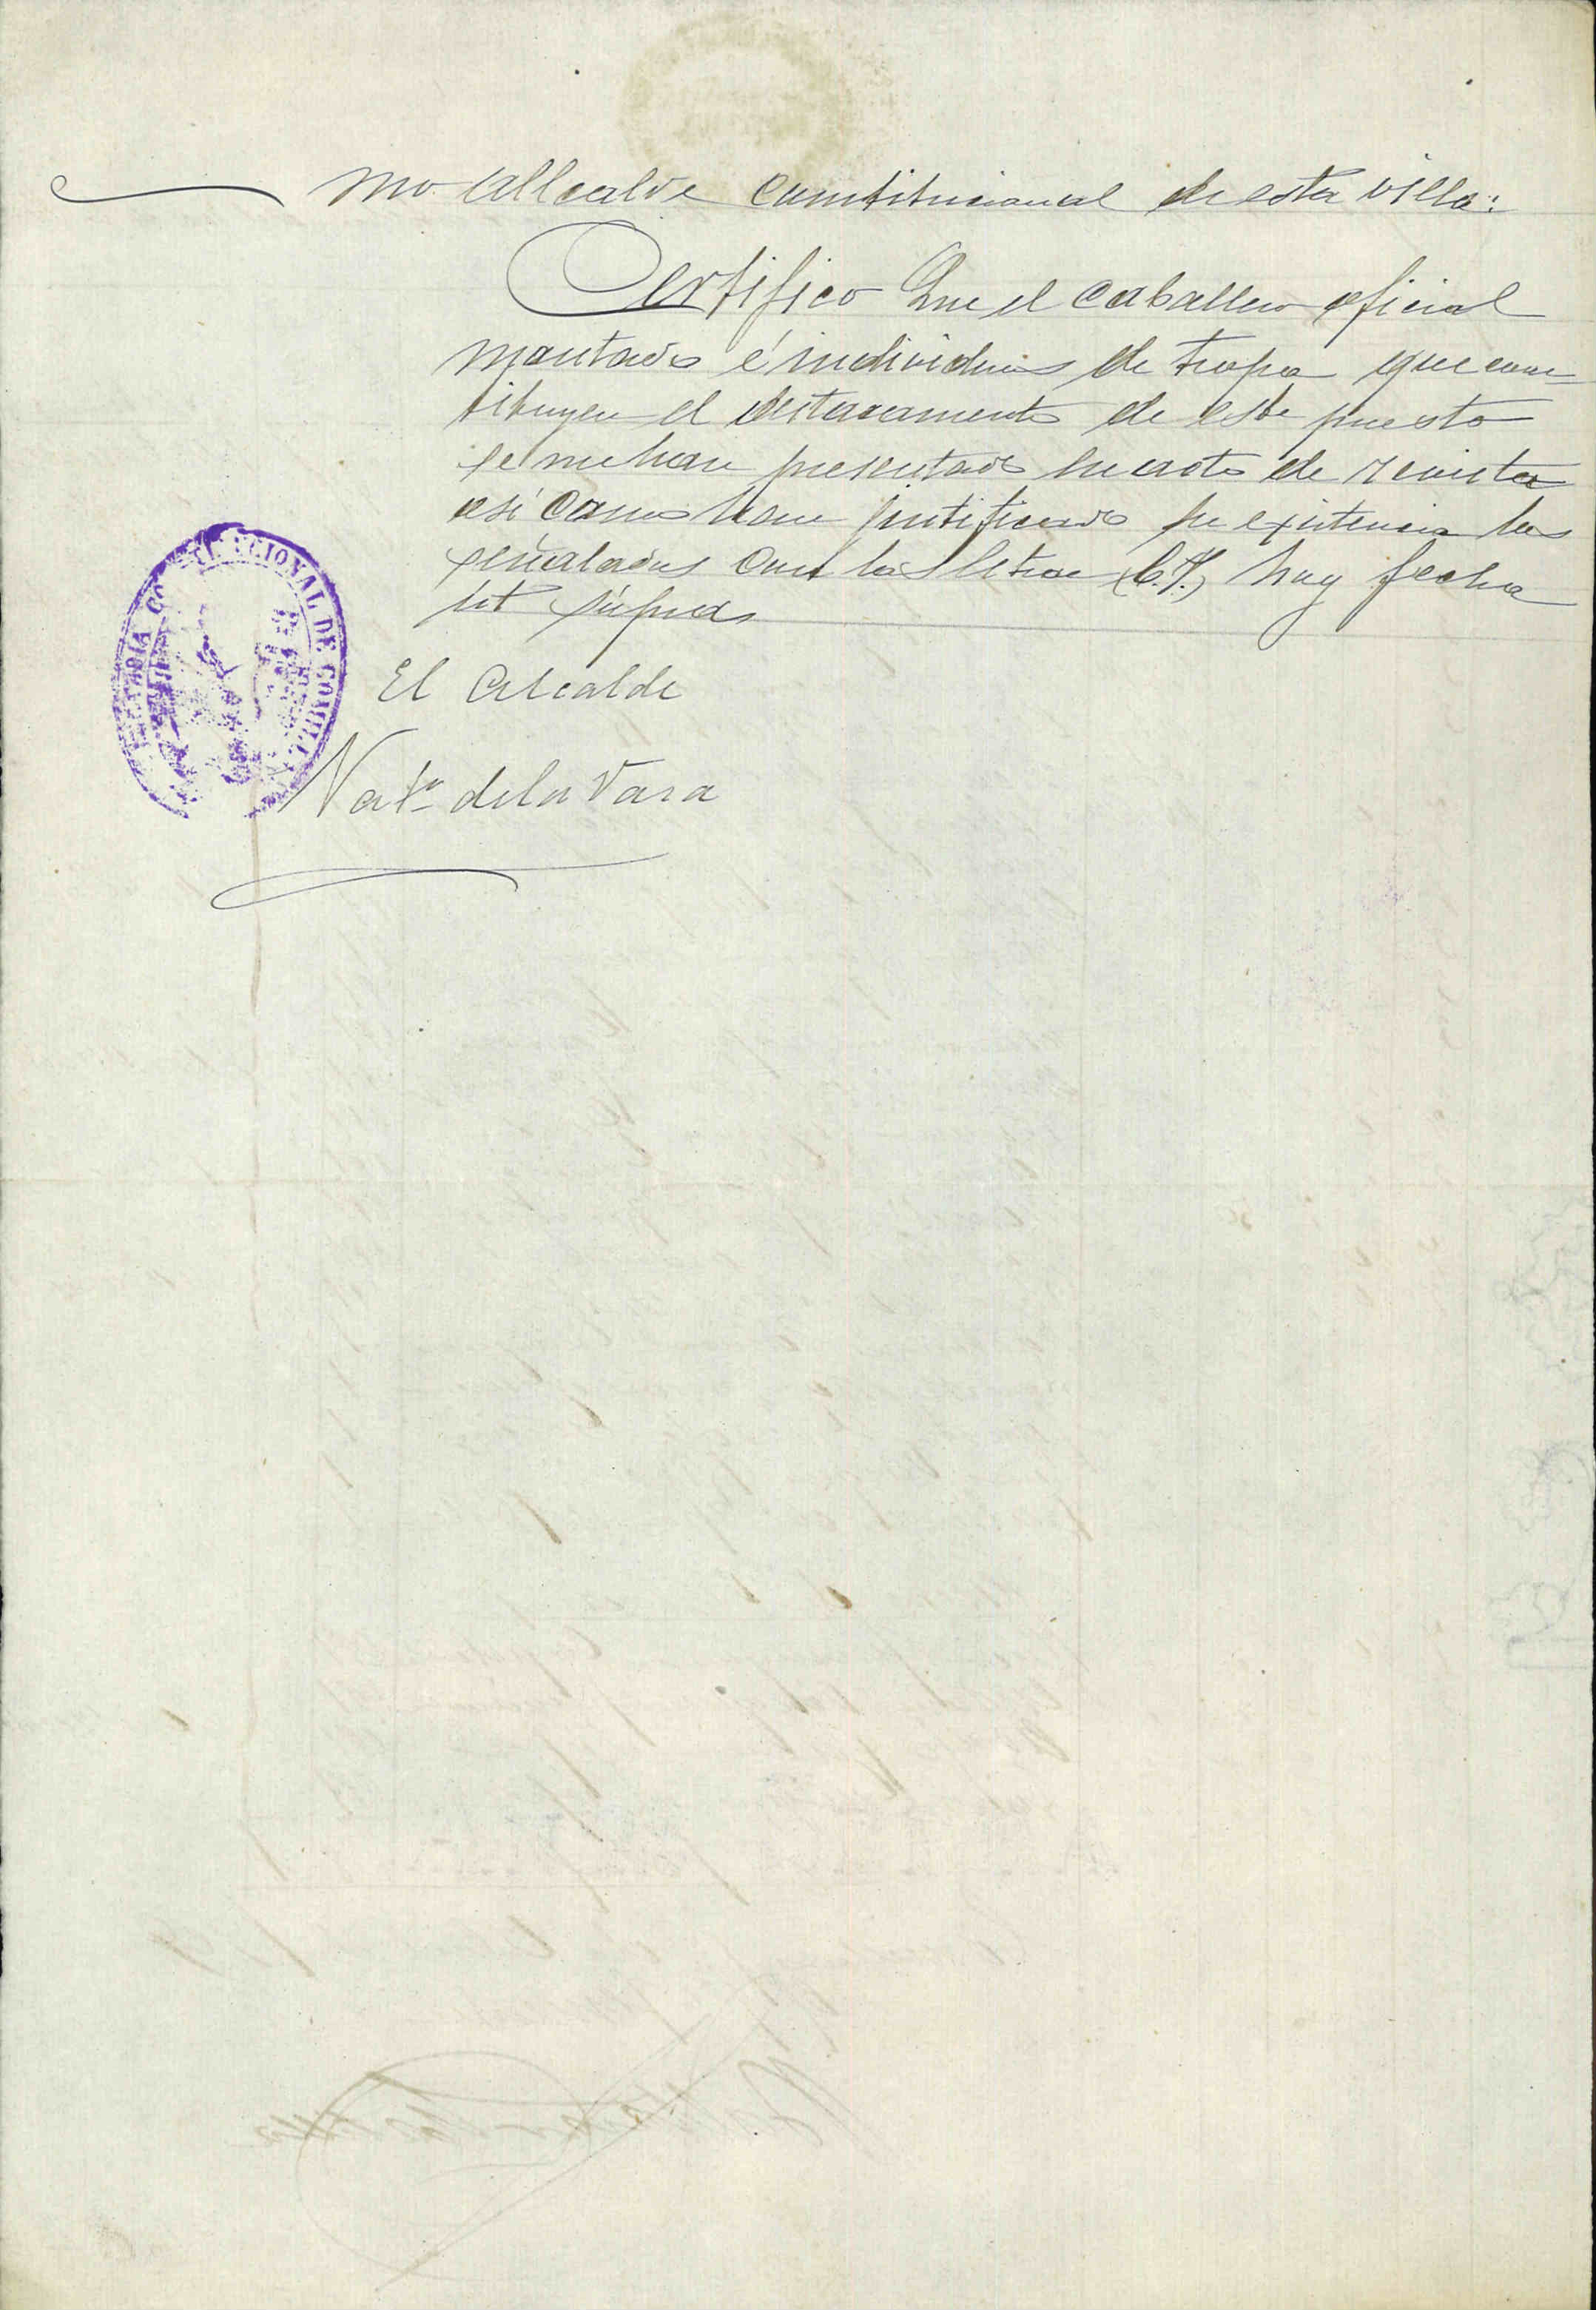 mo Allcalde Constitucional de esta villa:
Certifico Que el caballero oficial
montado é individuos de tropa que cons=
tituyen el destacamento de este puesto
se me han presentado en acto de revista
asi como han justificado su existencia los
señalados con las letras (C.J.) hoy fecha
ut supra
El Alcalde
de la Vara
CIONAL DE